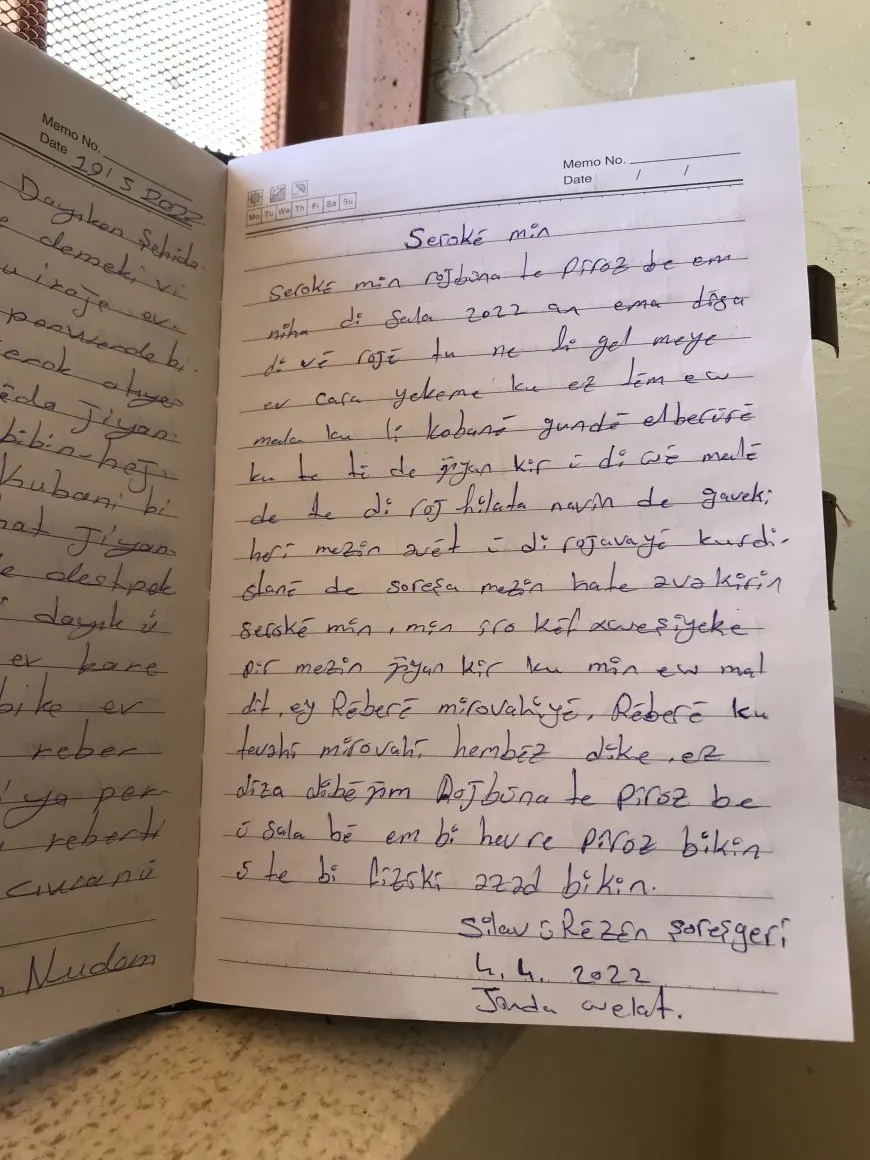 Memo No.
Date 19/5 2022
Dayiken Şehida
e demeki vi
u iraje ev
perwerde bi
erok ahye
êda Jiyan
bibin-hej
Khubani bi
hat Jiyan
e destpek
i dayik û
er kare
bike ev
reber
ya per-
reberti
ciwanû
Nudem
Memo No.
Date / /
Mo Tu We Th Fr Sa Su
Serokê min
Serokê min rojbûna te Piroz be em
niha di Sala 2022 an ema dîsa
di vê rojê tu ne li gel meye
ev cara yekeme ku ez têm ew
mala ku li kobanê gundê elberûrê
ku te tê de jiyan kir û di wê malê
de te di roj hilata navîn de gaveki
herî mezin avêt û di rojavayê kurdi-
stanê de soreşa mezin hate avakirin
serokê min, min iro kêf xweşiyeke
pir mezin jiyan kir ku min ew mal
dît, ey Rêberê mirovahiyê, Rêberê ku
tevahî mirovahî hembêz dike, ez
dîza dibêjim Rojbûna te Pîroz be
û sala bê em bi hev re Pîroz bikin
û te bi fizîkî azad bikin.
Silav û Rêzên şoreşgerî
4. 4. 2022
Jinda welat.